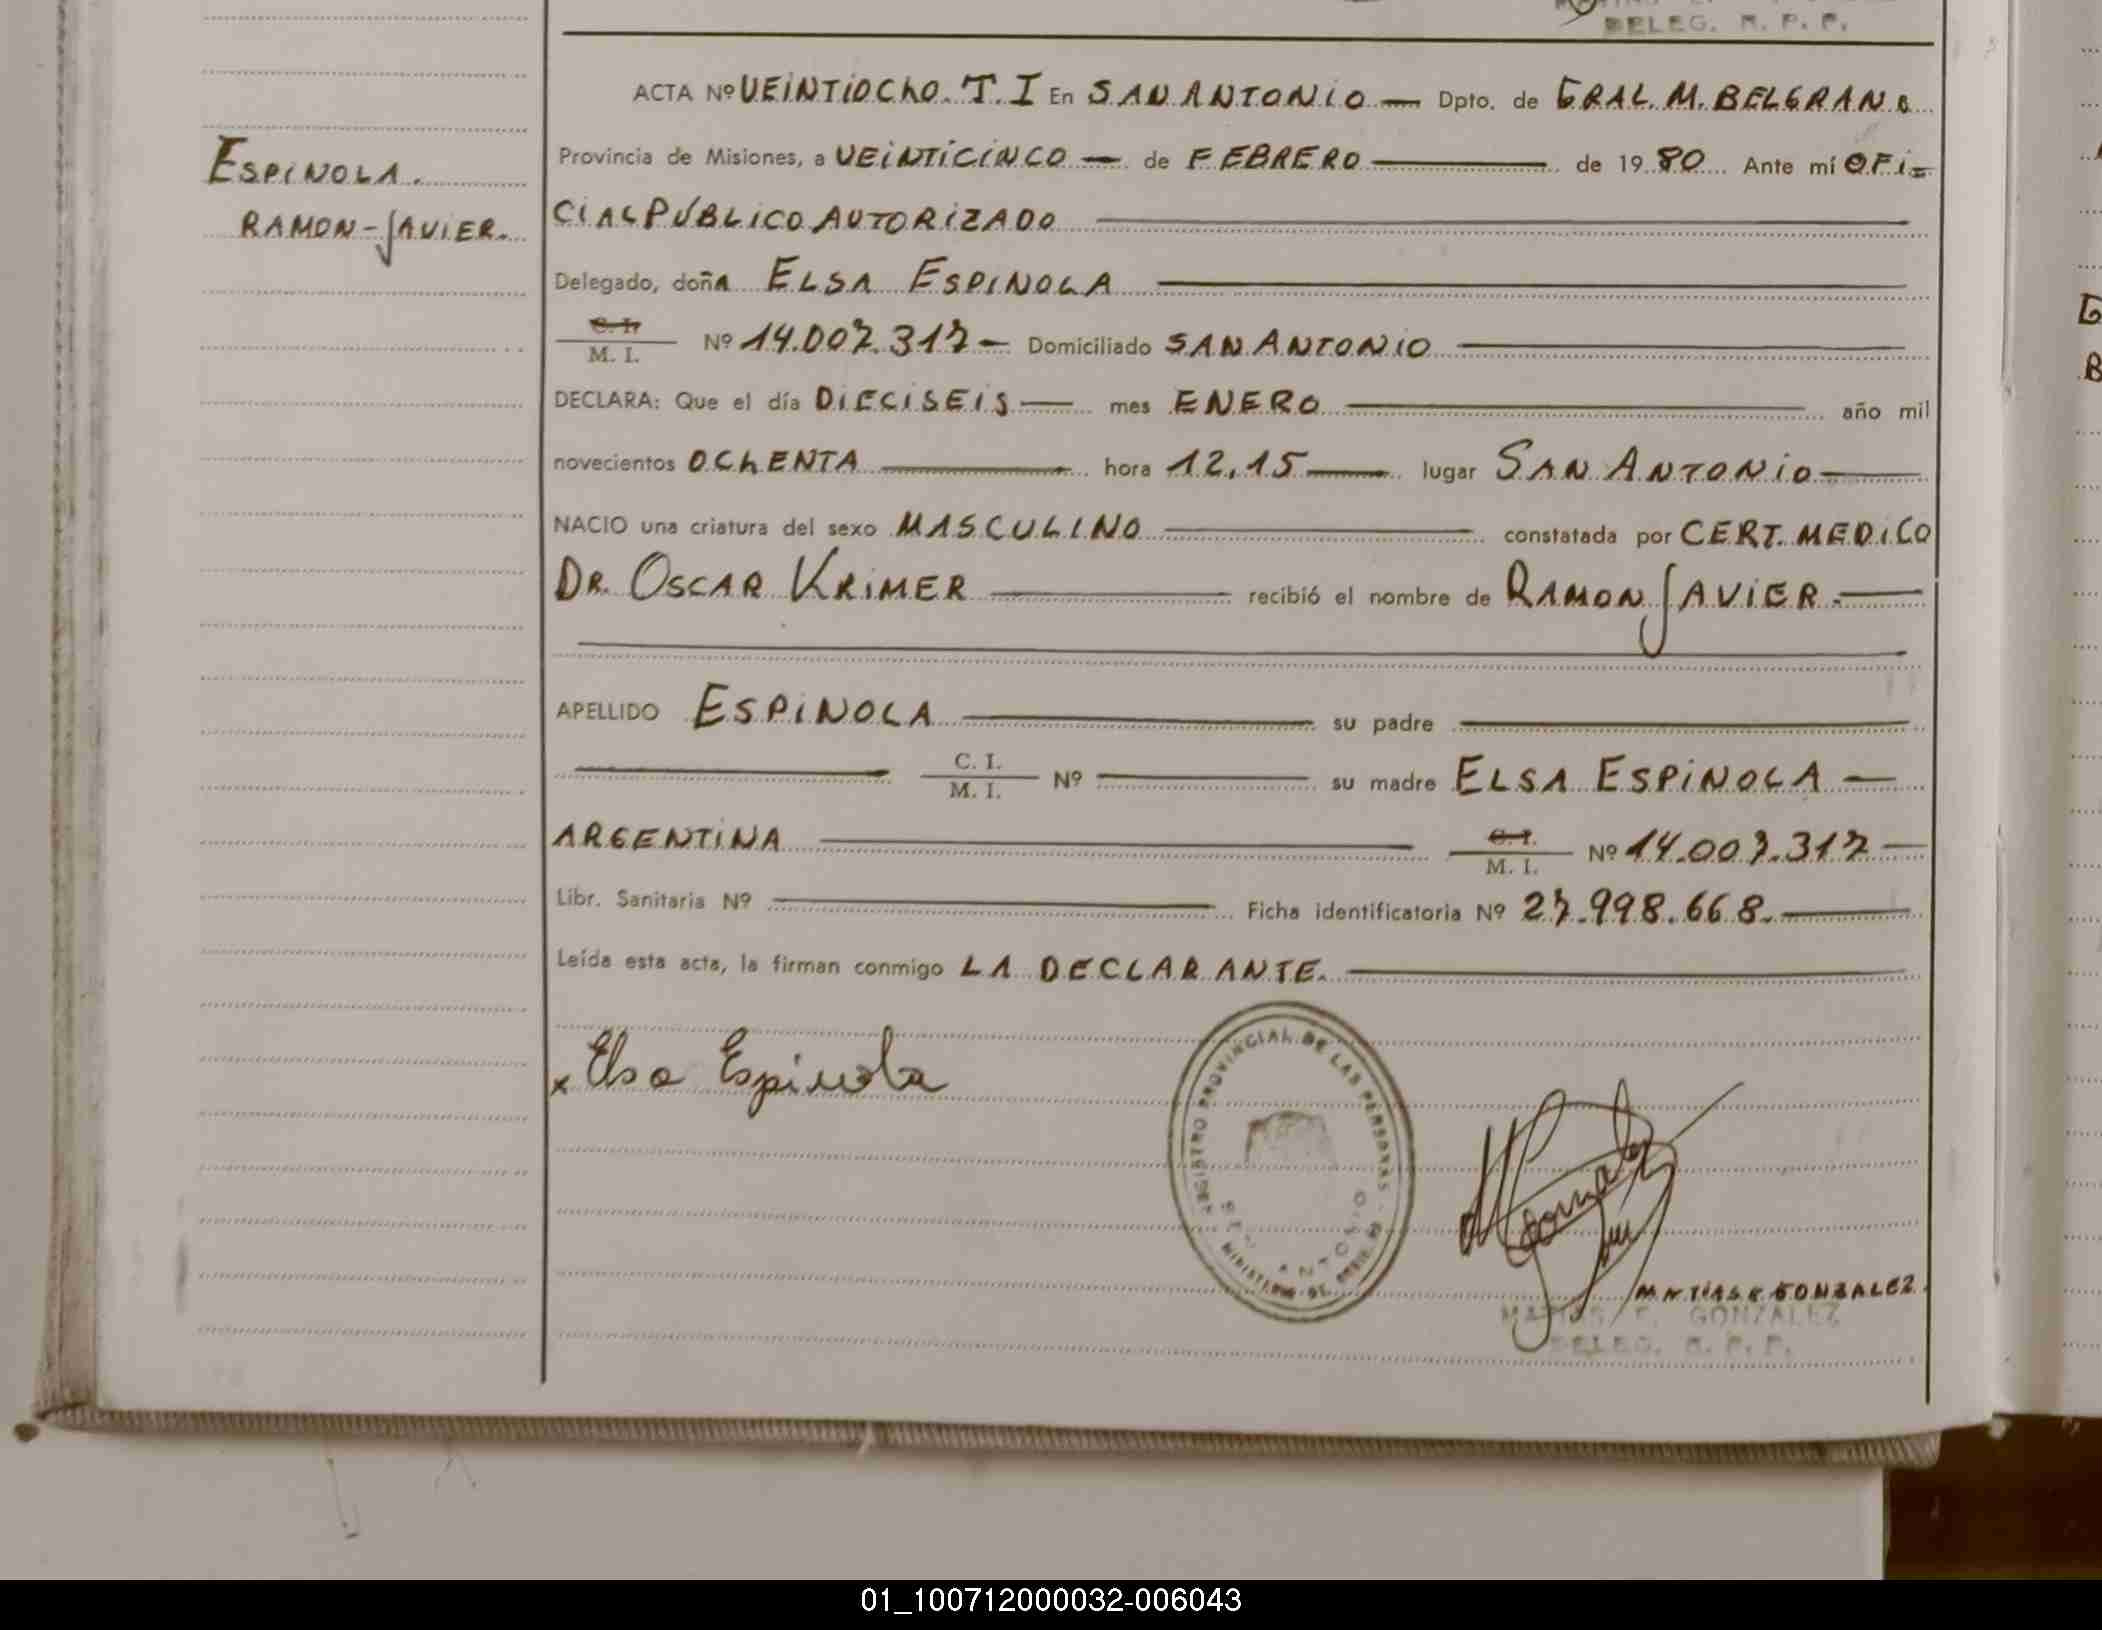 DELEG. R. P. P.
ACTA Nº VEINTIOCHO. T. I En SAN ANTONIO Dpto. de GRAL. M. BELGRANO
Provincia de Misiones, a VEINTICINCO de FEBRERO de 1980 Ante mí OFI=
ESPINOLA.
RAMON-JAVIER.
CIAL PÚBLICO AUTORIZADO
Delegado, doña ELSA ESPINOLA
C. I.
M. I. Nº 14.007.317 Domiciliado SAN ANTONIO
DECLARA: Que el día DIECISEIS mes ENERO año mil
novecientos OCHENTA hora 12.15 lugar SAN ANTONIO
NACIO una criatura del sexo MASCULINO constatada por CERT. MEDICO
DR. OSCAR KRIMER recibió el nombre de RAMON JAVIER.
APELLIDO ESPINOLA su padre
C. I.
M. I. Nº su madre ELSA ESPINOLA
ARGENTINA
C. I.
M. I. Nº 14.007.317
Libr. Sanitaria Nº Ficha identificatoria Nº 27.998.668.
Leída esta acta, la firman conmigo LA DECLARANTE.
x Elsa Espinola
REGISTRO PROVINCIAL DE LAS PERSONAS
SAN ANTONIO
MINISTERIO DE
MATIAS E GONZALEZ
MATIAS E. GONZALEZ
DELEG. R. P. P.
01_100712000032-006043